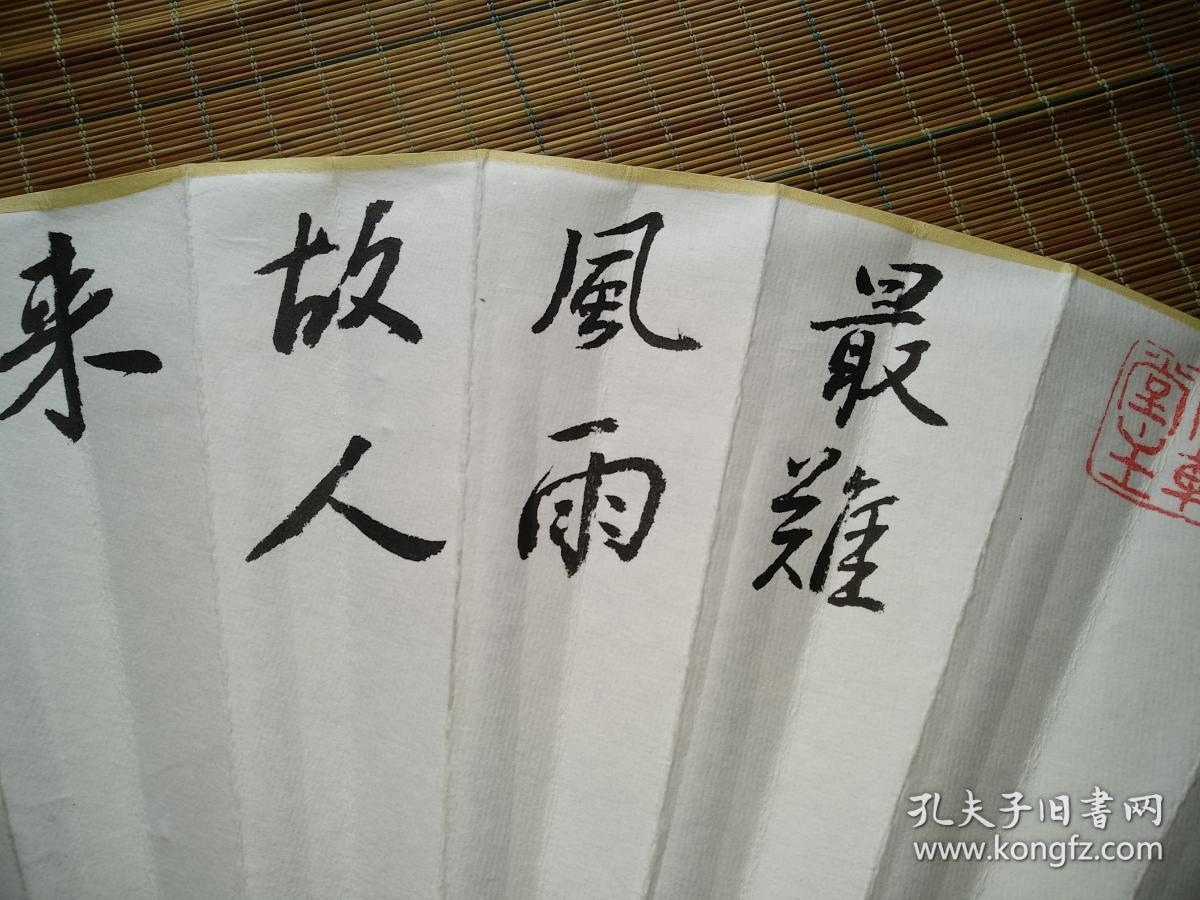 最難
風雨
故人
来
堂主
孔夫子旧书网
www.kongfz.com